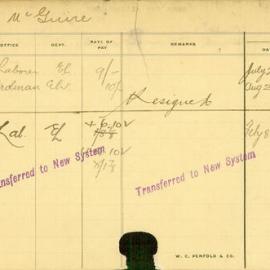 McGuire
OFFICE DEPT. RATE OF PAY REMARKS DATE
Laborer El. 9/- July 2
rdman El. 10/- Aug 23
Resigned
Lab El Feby
Transferred to New System
Transferred to New System
W. C. PENFOLD & CO.